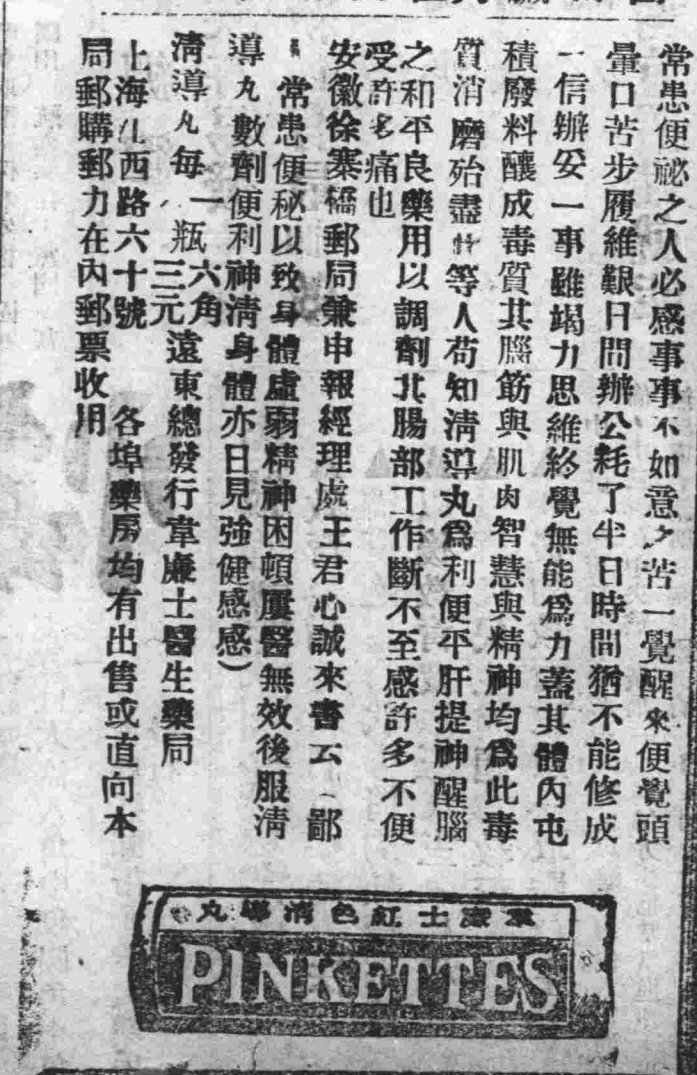 常患便祕之人必感事事不如意之苦一覺醒來便覺頭
暈口苦步履維艱日間辦公耗了半日時間猶不能修成
一信辦妥一事雖竭力思維終覺無能爲力蓋其體內屯
積廢料釀成毒質其腦筋與肌肉智慧與精神均爲此毒
質消磨殆盡等人苟知淸導丸爲利便平肝提神醒腦
之和平良藥用以調劑其腸部工作斷不至感許多不便
受許多痛也
安徽徐寨橋郵局兼申報經理處王君心誠來書云(鄙
常患便秘以致身體虛弱精神困頓屢醫無效後服淸
導丸數劑便利神淸身體亦日見強健感感)
淸導丸每一瓶六角三元遠東總發行韋廉士醫生藥局
上海江西路六十號 各埠藥房均有出售或直向本
局郵購郵力在內郵票收用
韋廉士紅色淸導丸
PINKETTES